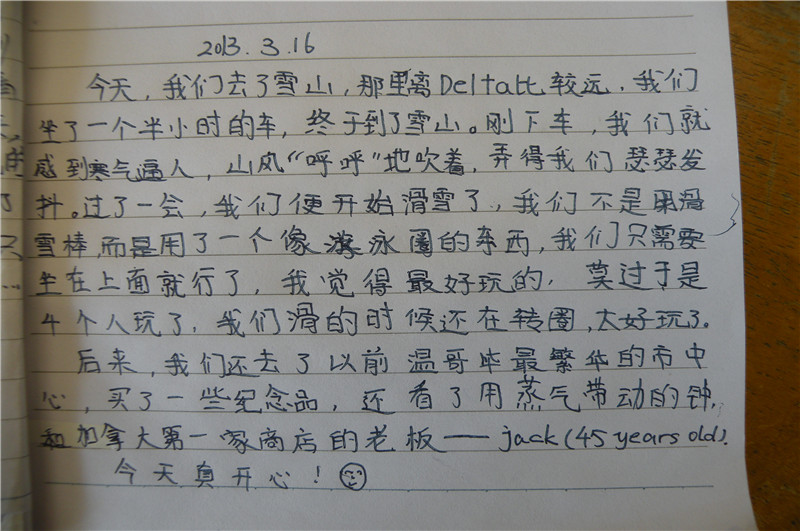 2013.3.16
今天，我们去了雪山，那里离Delta比较远．我们
坐了一个半小时的车，终于到了雪山。刚下车，我们就
感到寒气逼人，山风“呼呼”地吹着，弄得我们瑟瑟发
抖。过了一会，我们便开始滑雪了，我们不是用滑
雪棒，而是用了一个像游泳圈的东西，我们只需要
坐在上面就行了，我觉得最好玩的，莫过于是
4个人玩了，我们滑的时候还在转圈，太好玩了。
后来，我们还去了以前温哥华最繁华的市中
心，买了一些纪念品，还看了用蒸气带动的钟，
和加拿大第一家商店的老板——jack(45 years old).
今天真开心！